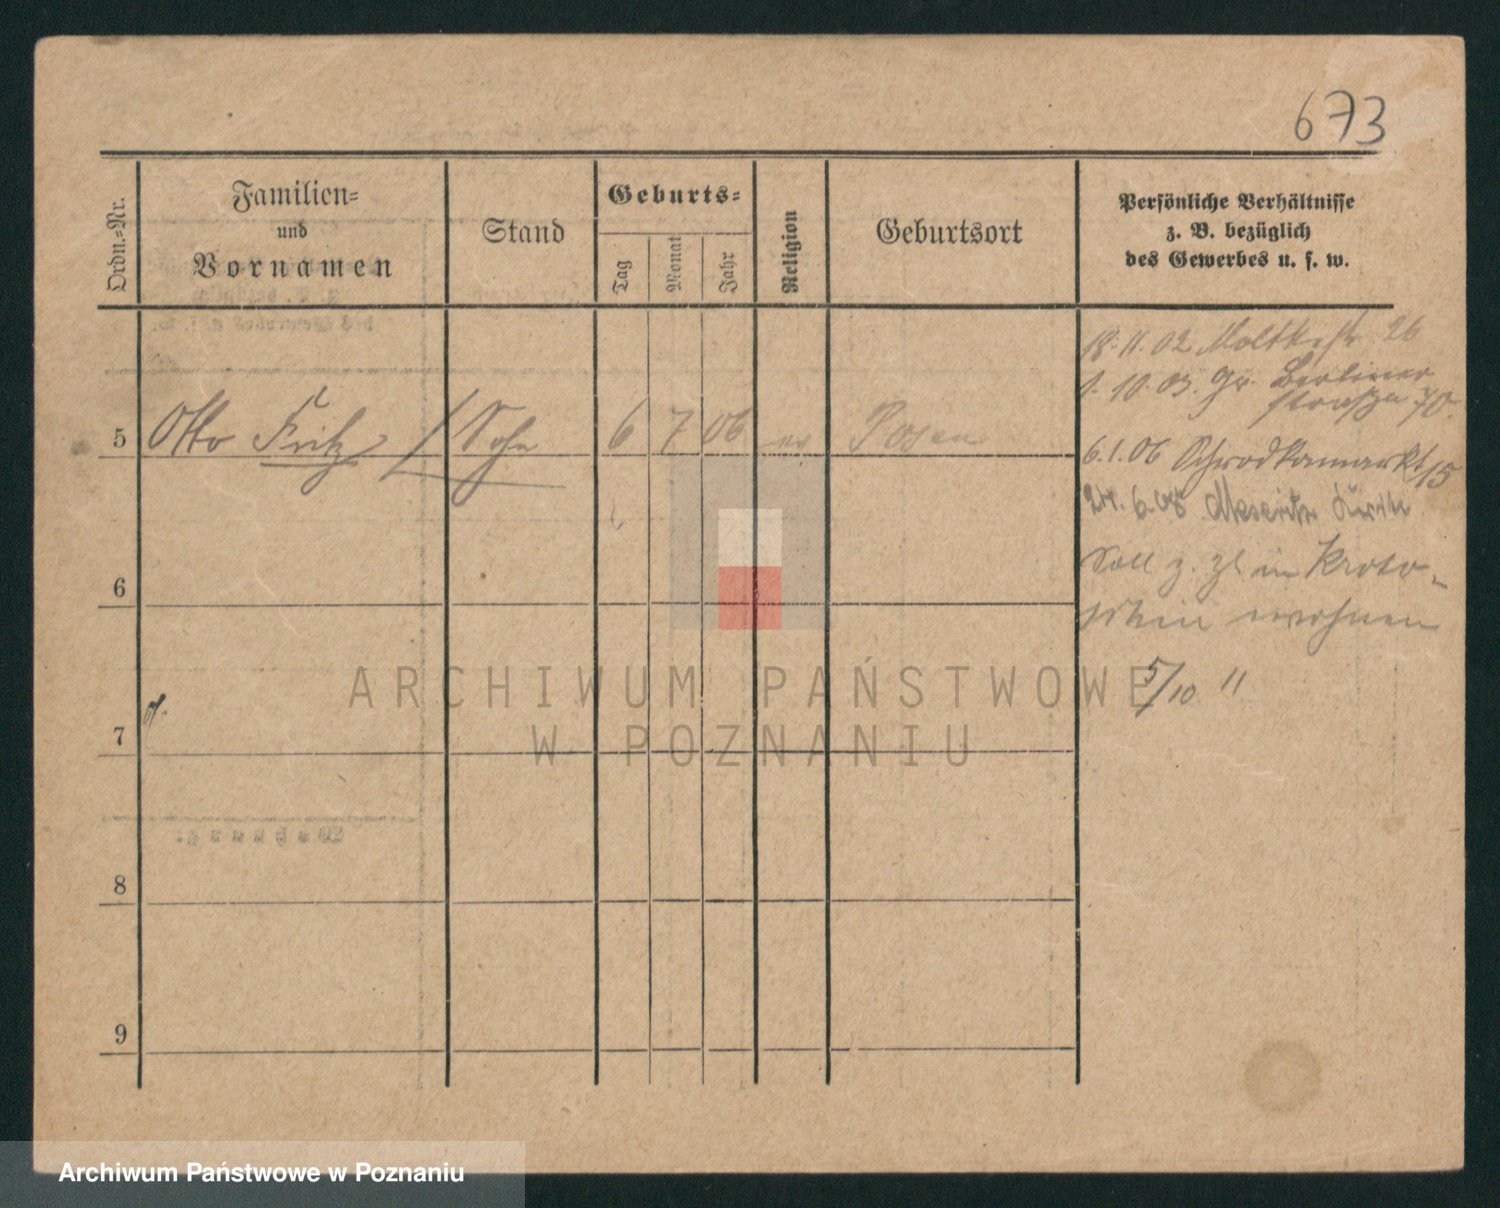 673
Ordn.-Nr.
Familien-
und
Vornamen
Stand
Geburts-
Tag
Monat
Jahr
Religion
Geburtsort
Persönliche Verhältnisse
z. B. bezüglich
des Gewerbes u. s. w.
18.11.02 Moltkestr 26
1. 10 03. Gr. Berliner
straße 70.
5 Otto Fritz Sohn 6 7 06 ev Posen
6.1.06 Schrodkamarkt 15
24. 6.08 Meseritz
Soll z. Zt in Kroto-
schin wohnen
5/10 11
6
7
8
9
Wohnung:
ARCHIWUM PAŃSTWOWE
W POZNANIU
Archiwum Państwowe w Poznaniu